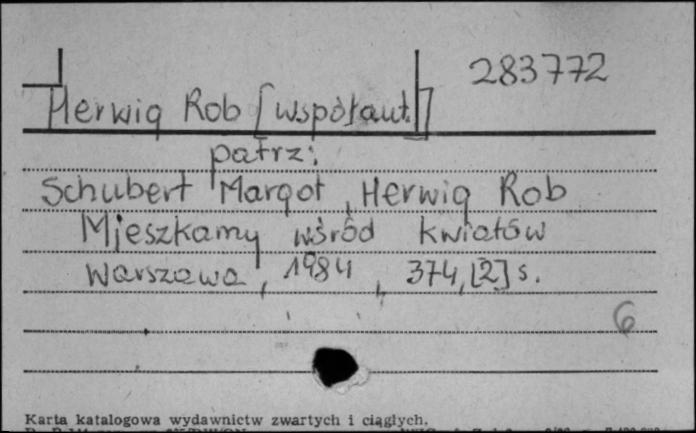 283772
Herwig Rob [współaut.]
patrz:
Schubert Margot, Herwig Rob
Mieszkamy wśród kwiatów
Warszawa, 1984, 374,[2] s.
6
Karta katalogowa wydawnictw zwartych i ciągłych.